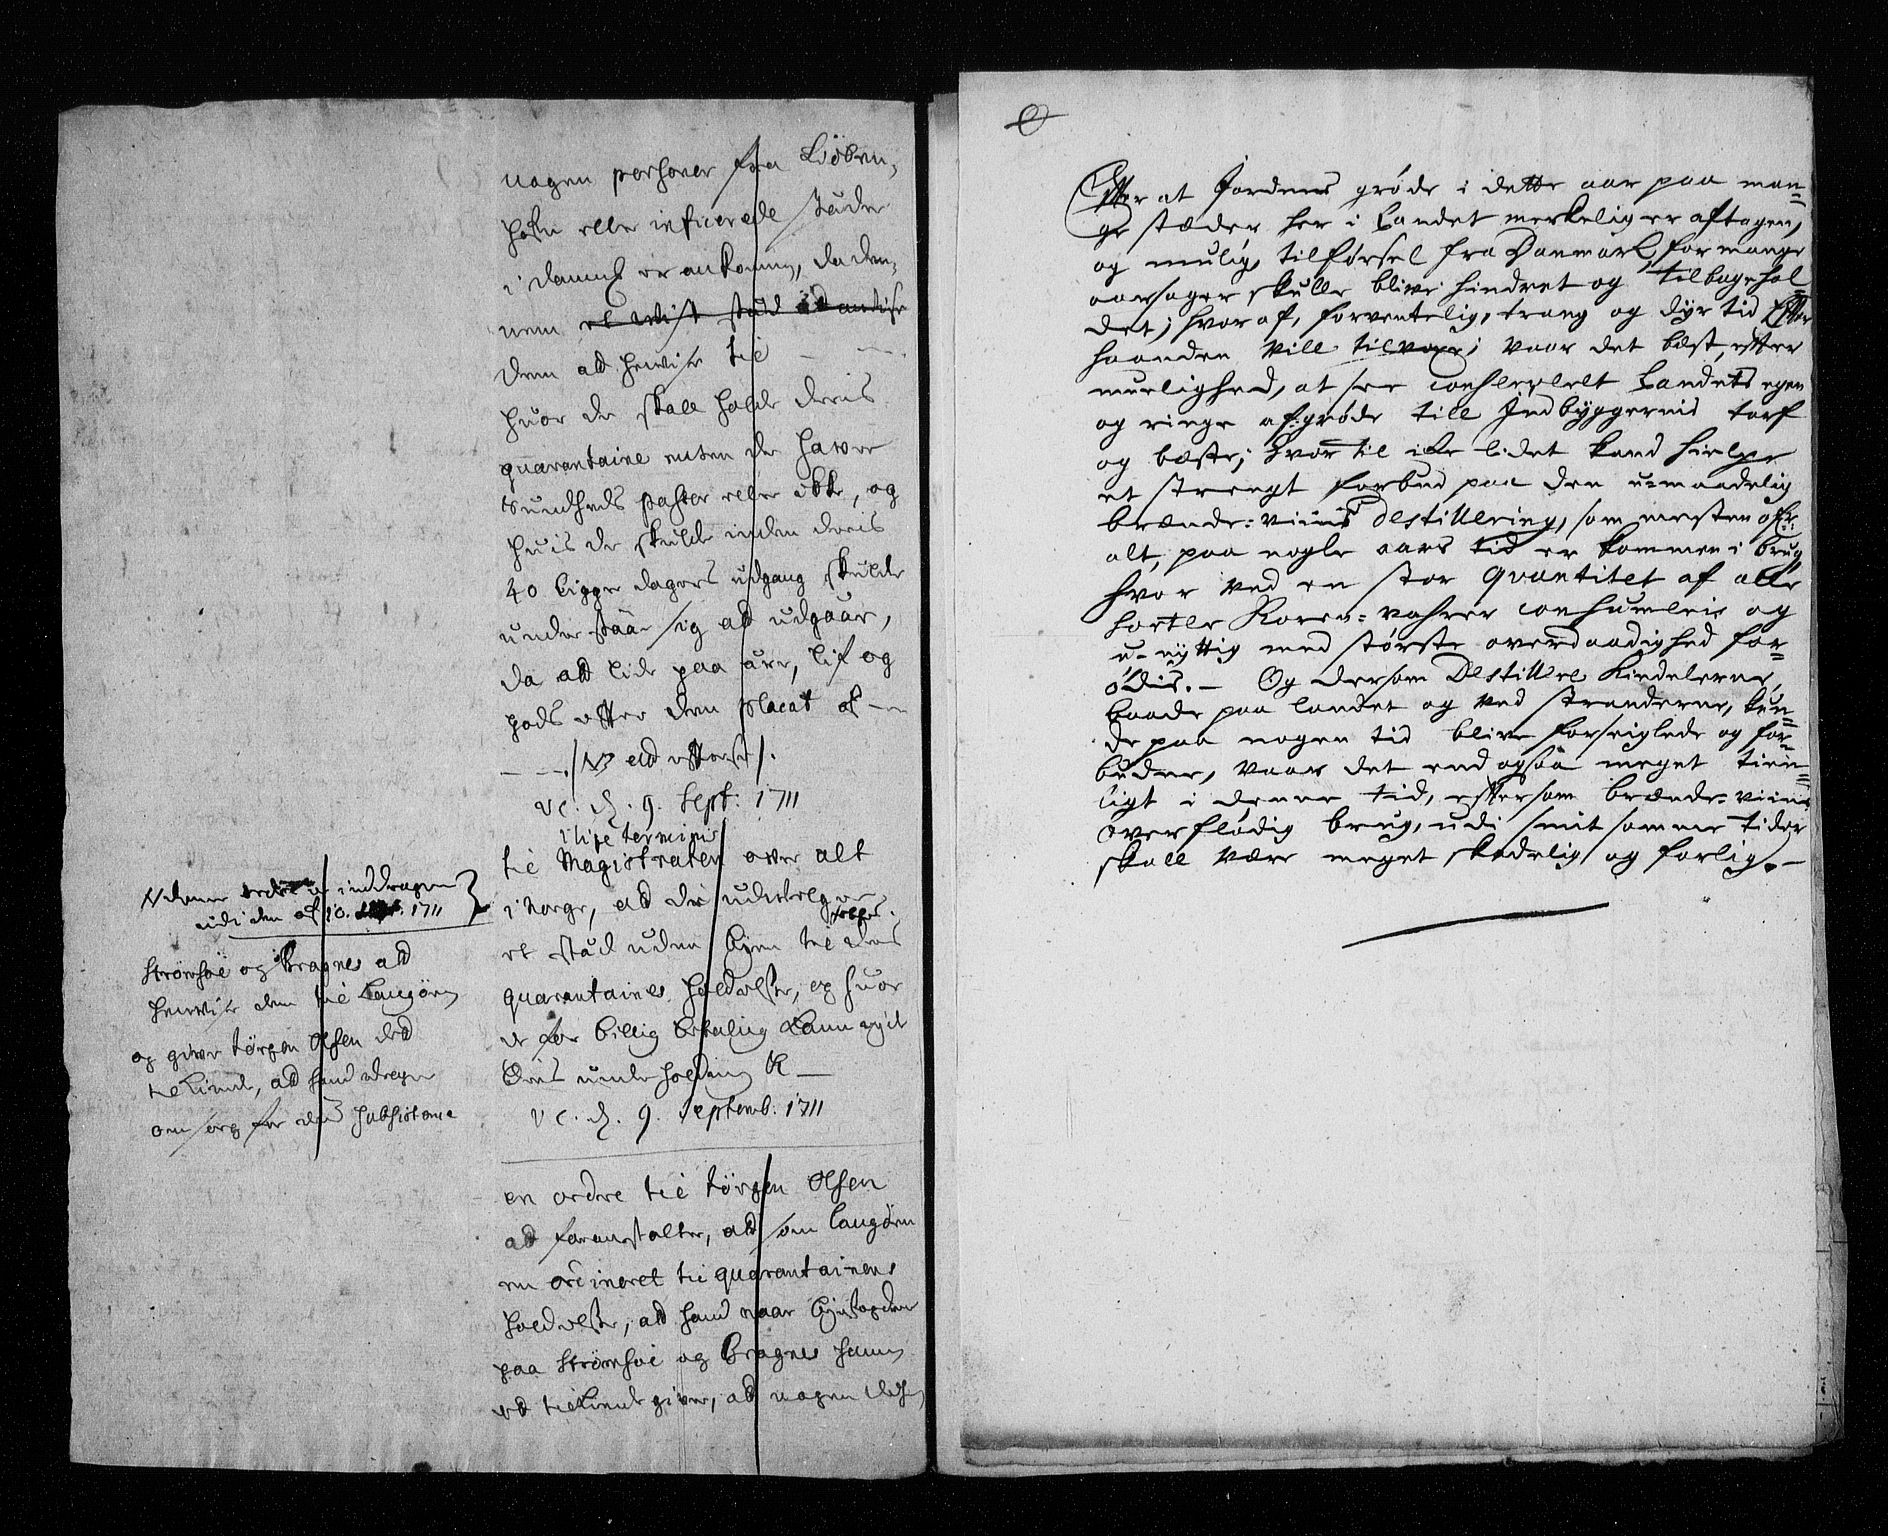 nogen persohner fra Kiöben,
hafn eller inficerede stæder
i Danmk er ankommen, da den,
nem et wist stæd ad anvise
dem ad henvise til —
huor de skall holde deris
quarantaine enten de hawer
Sundheds passer eller ikke, og
huis de skulde inden deris
40 ligge dagers udgang skulde
understaae sig ad udgaar,
da ad lide paa ære, lif og
gods efter den placat af —
vc. d. 9. Sept: 1711
i lige termini
til Magistraten over alt
i Norge, ad de udvelger
et stæd uden byen til deris
quarantaines holdelse, og huor
de for billig betaling kand nyde
deris underholdning &c —
vc. d. 9. Septemb. 1711
N denne ordre er inddragen
udi den af 10. Sept. 1711
Strømsøe og Bragnes ad
henvise dem til Langøen
og giver Jørgen Olsen ded
tilkiende, ad hand drager
omsorg for den subsistance
en ordre til Jørgen Olsen
ad foranstalter, ad som Langøen
nu ordineret til quarantainens
holdelse, ad hand naar byefogden
paa Strømsøe og Bragnes hannem
ed tilkiende giver, ad nogen
Efter at Jordens grøde i dette aar paa man=
ge stæder her i Landet merkelig er aftagen,
og mulig, tilførsel fra Danmark, for mange
aarsager skulle blive hindret og tilbagehol=
det; hvoraf, forventelig, trang og dyrtid Efter
haanden vill tilvoxe; vaar det best, efter
muelighed, at see conserveret Landets egen
og ringe af:grøde till Indbyggernis tarf
og bæste; hvortil icke lidet kand hielpe
et strengt forbud paa den u=maadelig
brænde=viins Destillering, som mesten ofver
alt, paa nogle aars tid er kommen i brug
hvor ved en stor qvantitet af alle
sorter Koren=vahrer consumeris og
u=nyttig med største overdaadighed for=
ødis. — Og dersom Destillere Kiedelerne,
baade paa landet og ved stranderne, kun=
de paa nogen tid blive forseiglede og for=
buden, vaar det endogsaa meget tien=
ligt i denne tid, eftersom brænde=viins
overflødig brug, udi smitsomme tider
skall være meget skadelig og farlig. —